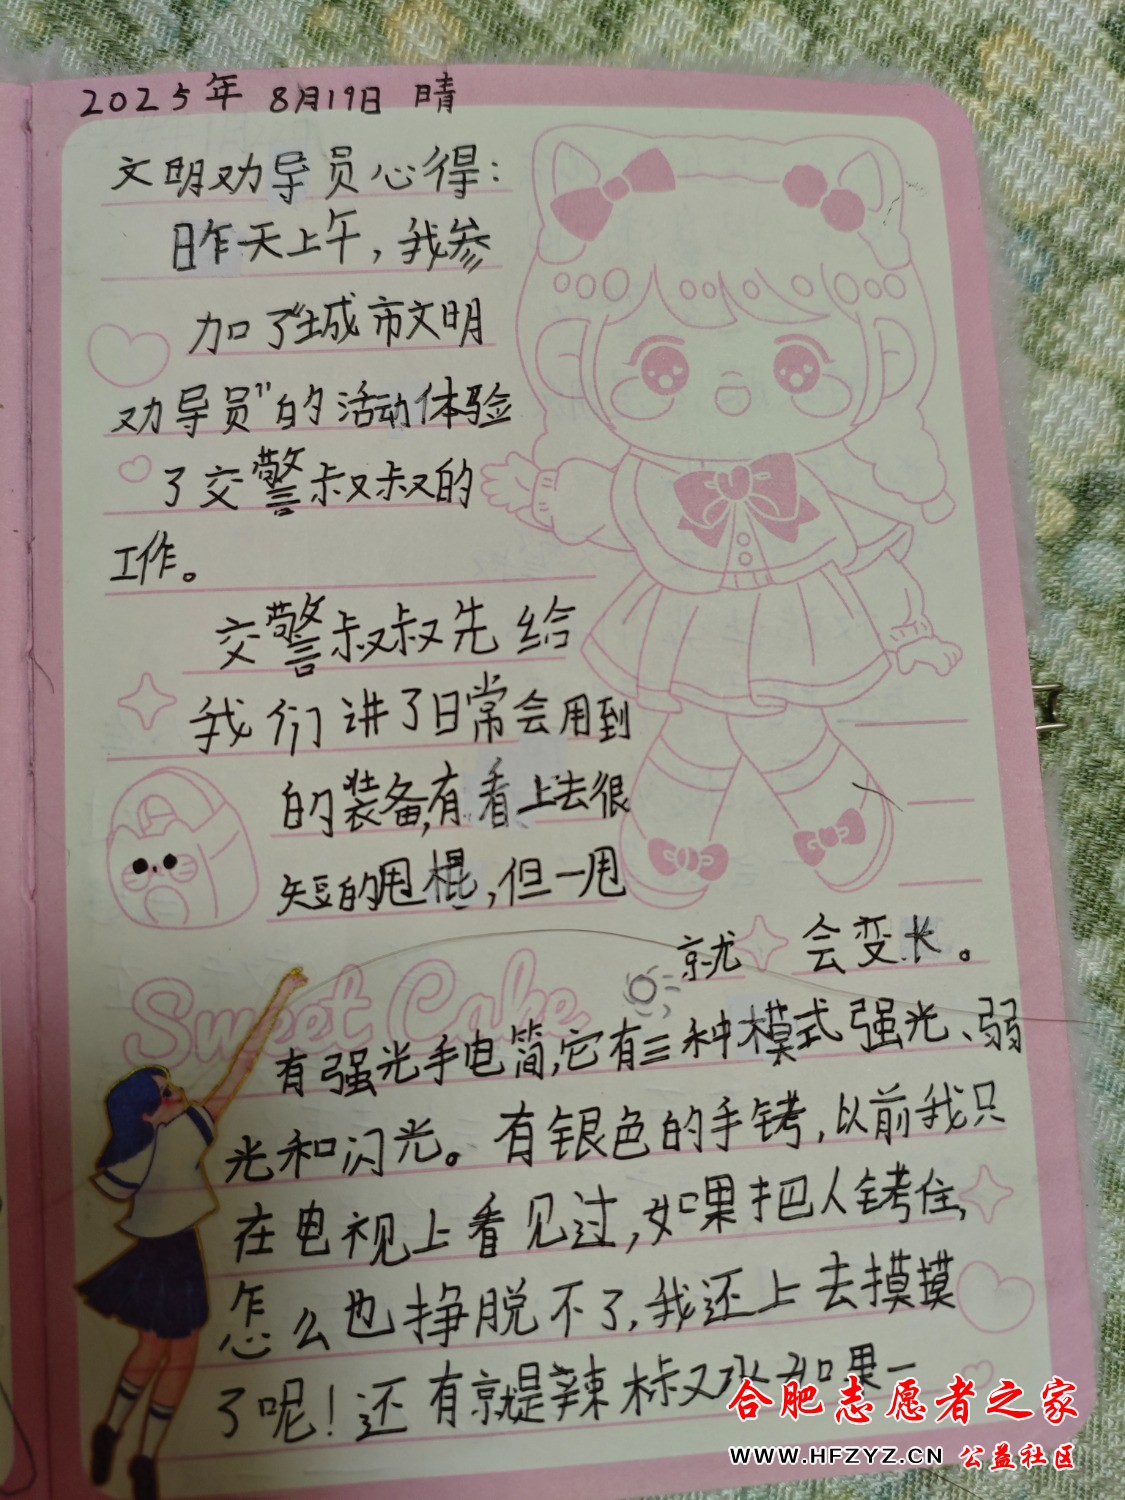 2025年 8月19日 晴
文明劝导员心得：
昨天上午，我参
加了“城市文明
劝导员”的活动体验
了交警叔叔的
工作。
交警叔叔先给
我们讲了日常会用到
的装备,有看上去很
短的甩棍,但一甩
就会变长。
Sweet Cake
有强光手电筒,它有三种模式强光、弱
光和闪光。有银色的手铐,以前我只
在电视上看见过,如果把人铐住,
怎么也挣脱不了,我还上去摸摸
了呢！还有就是辣椒水如果一
合肥志愿者之家
WWW.HFZYZ.CN 公益社区